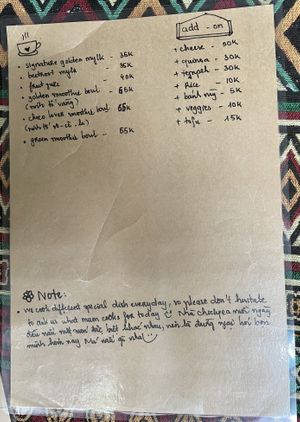 • signature golden mylk - 35K
• beetroot mylk - 35K
• fruit juice - 40K
• golden smoothie bowl - 65K
(sinh tố vàng)
• choco lover smoothie bowl 65K
(sinh tố sô-cô-la)
• green smoothie bowl - 65K
add - on
+ cheese - 30K
+ quinoa - 30K
+ tempeh - 30K
+ Rice - 10K
+ bánh mỳ - 5K
+ veggies - 10K
+ tofu - 15K
Note:
• we cook different special dish everyday, so please don't hesitate
to ask us what mum cooks for today Nhà chickpea mỗi ngày
đều nấu một món đặc biệt khác nhau, nên đừng ngại hỏi bọn
mình hôm nay Mẹ nấu gì nha!